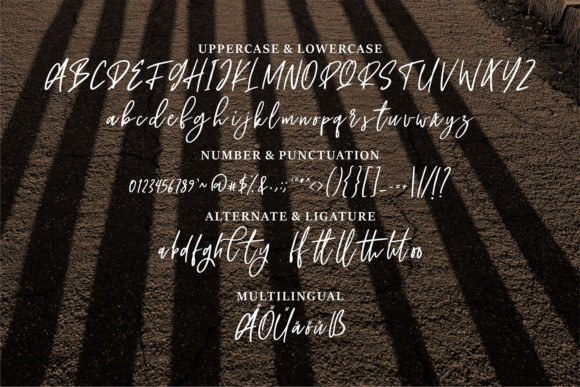 UPPERCASE & LOWERCASE
ABCDEFGHIJKLMNOPQRSTUVWXYZ
abcdefghijklmnopqrstuvwxyz
NUMBER & PUNCTUATION
0123456789'~@#$%&.,:;'"*^<>(){}[]_-+÷|\/!?
ALTERNATE & LIGATURE
abdfghlty ff tt ll th ht oo
MULTILINGUAL
ÄÖÜäöüß